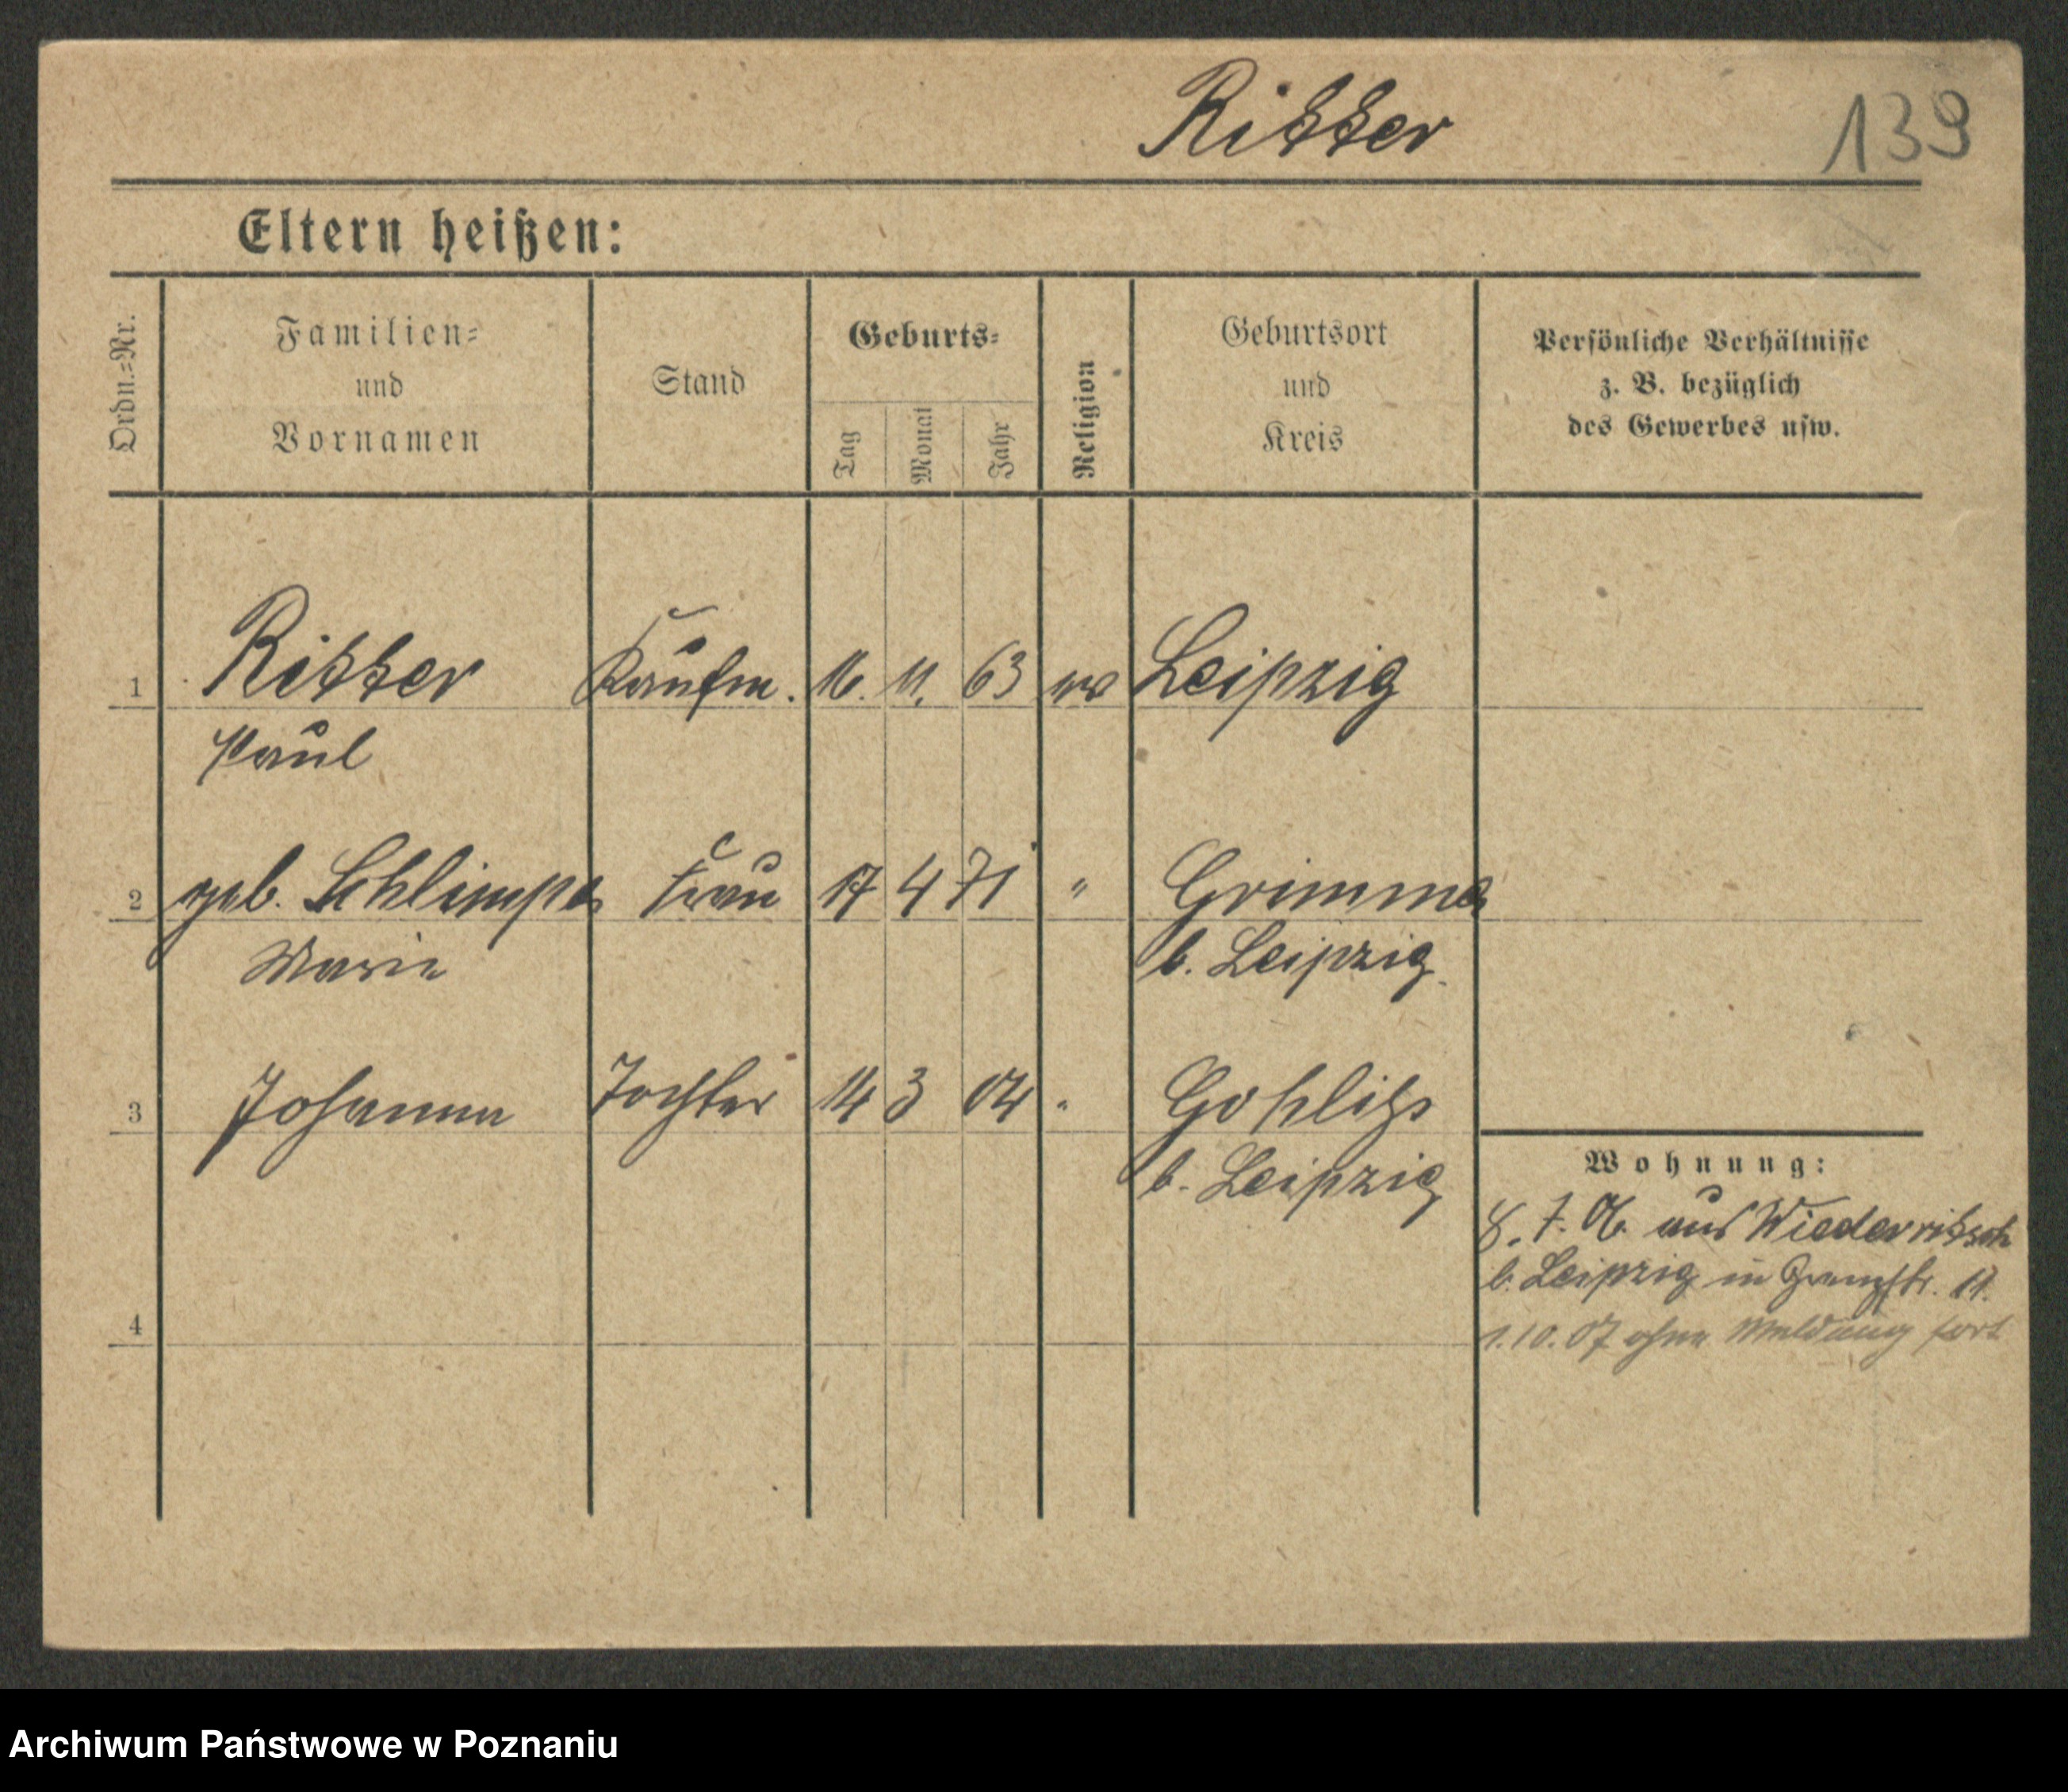 Ritter 139
Eltern heißen:
Ordn.=Nr.
Familien=
und
Vornamen
Stand
Geburts=
Tag
Monat
Jahr
Religion
Geburtsort
und
Kreis
Persönliche Verhältnisse
z. B. bezüglich
des Gewerbes usw.
1 Ritter Kaufm. 16. 11. 63 ev Leipzig
Paul
2 geb. Schlimpe Frau 17 4 71 " Grimma
Marie b. Leipzig.
3 Johanna Tochter 14 3 04 " Gohlis
b. Leipzig
Wohnung:
8. 7. 06. aus Wiederitzsch
b. Leipzig in Grenzstr. 11.
4
1.10.07 ohne Meldung fort
Archiwum Państwowe w Poznaniu